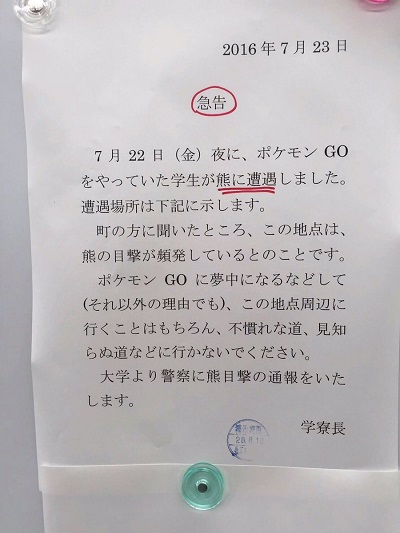 2016年7月23日
急告
7月22日（金）夜に、ポケモンGO
をやっていた学生が熊に遭遇しました。
遭遇場所は下記に示します。
町の方に聞いたところ、この地点は、
熊の目撃が頻発しているとのことです。
ポケモンGOに夢中になるなどして
(それ以外の理由でも)、この地点周辺に
行くことはもちろん、不慣れな道、見知
らぬ道などに行かないでください。
大学より警察に熊目撃の通報をいた
します。
学寮長